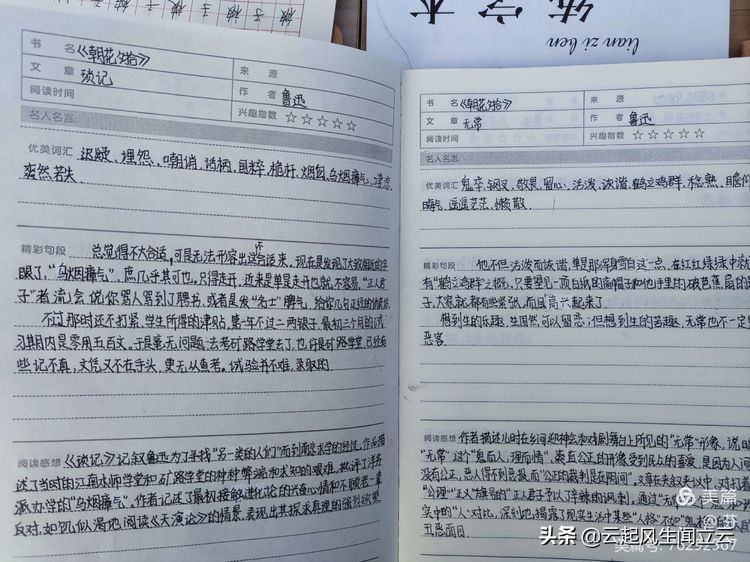 练字本
lian zi ben
书 名 《朝花夕拾》
来 源
文 章 琐记
作 者 鲁迅
阅读时间
兴趣指数 ☆☆☆☆☆
名人名言:
优美词汇
埋怨、嘲诮、话柄、国粹、桅杆、烟囱、乌烟瘴气、
爽然若失
精彩句段 总觉得不大合适,可是无法形容出这不合适来。现在是发现了大致相近的字
眼了,“乌烟瘴气”,庶几乎其可也。只得走开。近来是单是走开也就不容易,“正人君
子”者流会说你骂人骂到了聘书,或者是发“名士”脾气,给你几句正经的俏皮话。
不过那时还不打紧,学生所得的津贴,第一年不过二两银子,最初三个月的试
习期内是零用五百文。于是毫无问题,去考矿路学堂去了,也许是矿路学堂,已经有
些记不真,文凭又不在手头,更无从查考。试验并不难,录取的
阅读感想 《琐记》记叙鲁迅为了寻找“另一类的人们”而到南京求学的经过。作品描
述了当时的江南水师学堂和矿路学堂的种种弊端和求知的艰难,批评了洋务
派办学的“乌烟瘴气”。作者记述了最初接触进化论的兴奋心情和不顾老一辈
反对,如饥似渴地阅读《天演论》的情景,表现出其探求真理的强烈欲望
书 名 《朝花夕拾》
来 源
文 章 无常
作 者 鲁迅
阅读时间
兴趣指数 ☆☆☆☆☆
名人名言
优美词汇 鬼卒、钢叉、敬畏、留心、活泼、诙谐、鹤立鸡群、稔熟、
遥遥茫茫、懒散
精彩句段 他不但活泼而诙谐,单是那浑身雪白这一点,在红红绿绿中就
有“鹤立鸡群”之概。只要望见一顶白纸的高帽子和他手里的破芭蕉扇的影
子,大家就都有些紧张,而且高兴起来了。
想到生的乐趣,生固然可以留恋;但想到生的苦趣,无常也不一定是
恶客。
阅读感想 作者描述儿时在乡间迎神会和戏剧舞台上所见的“无常”形象,说明
“无常”这个“鬼而人,理而情”、爽直公正的形象受到民众的喜爱,是因为人间
没有公正,恶人得不到恶报,而“公正的裁判是在阴间”。文章在夹叙夹议中,对打着
“公理”“正义”旗号的“正人君子”予以了辛辣的讽刺,通过“无
实中的“人”对比,深刻地揭露了现实生活中某些“人格”不如“鬼
丑恶面目。
美篇
头条 @云起风生闻立云
美篇号: 70292367